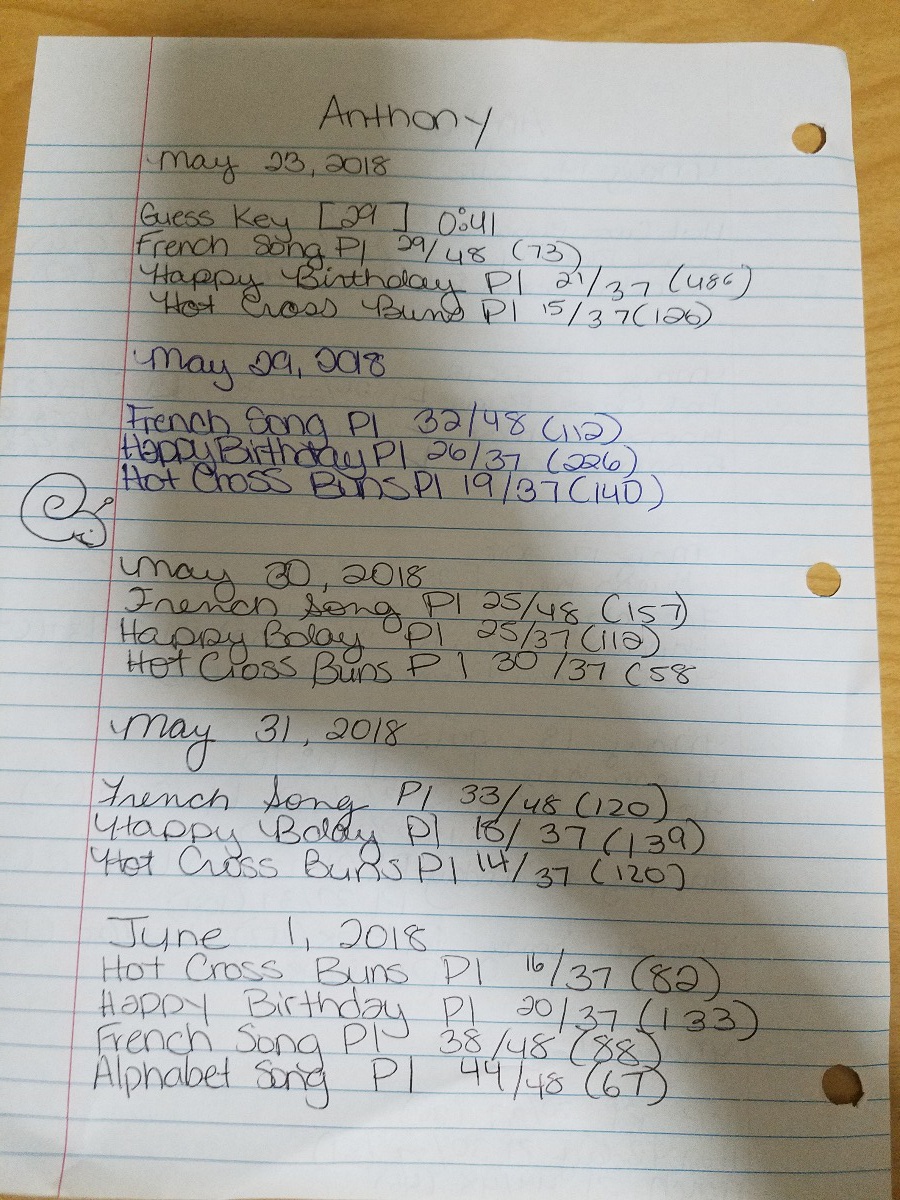 Anthony
May 23, 2018
Guess Key [29] 0:41
French Song P1 29/48 (73)
Happy Birthday P1 21/37 (486)
Hot Cross Buns P1 15/37 (126)
May 29, 2018
French Song P1 32/48 (112)
Happy Birthday P1 26/37 (226)
Hot Cross Buns P1 19/37 (140)
May 30, 2018
French Song P1 25/48 (157)
Happy Bday P1 25/37 (112)
Hot Cross Buns P1 30/37 (58
May 31, 2018
French Song P1 33/48 (120)
Happy Bday P1 18/37 (139)
Hot Cross Buns P1 14/37 (120)
June 1, 2018
Hot Cross Buns P1 16/37 (82)
Happy Birthday P1 20/37 (133)
French Song P1 38/48 (88)
Alphabet Song P1 44/48 (67)